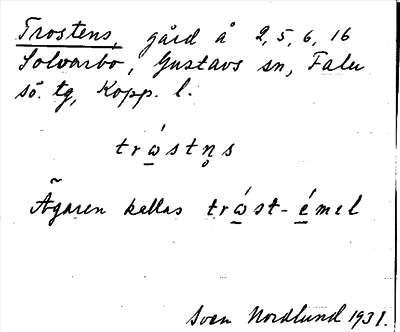 Trostens, gård å 2, 5, 6, 16
Solvarbo, Gustavs sn, Falu
sö. tg, Kopp. l.
trώ̲stn̥s
Ägaren kallas trώ̲st-é̲mel
Sven Nordlund 1931.